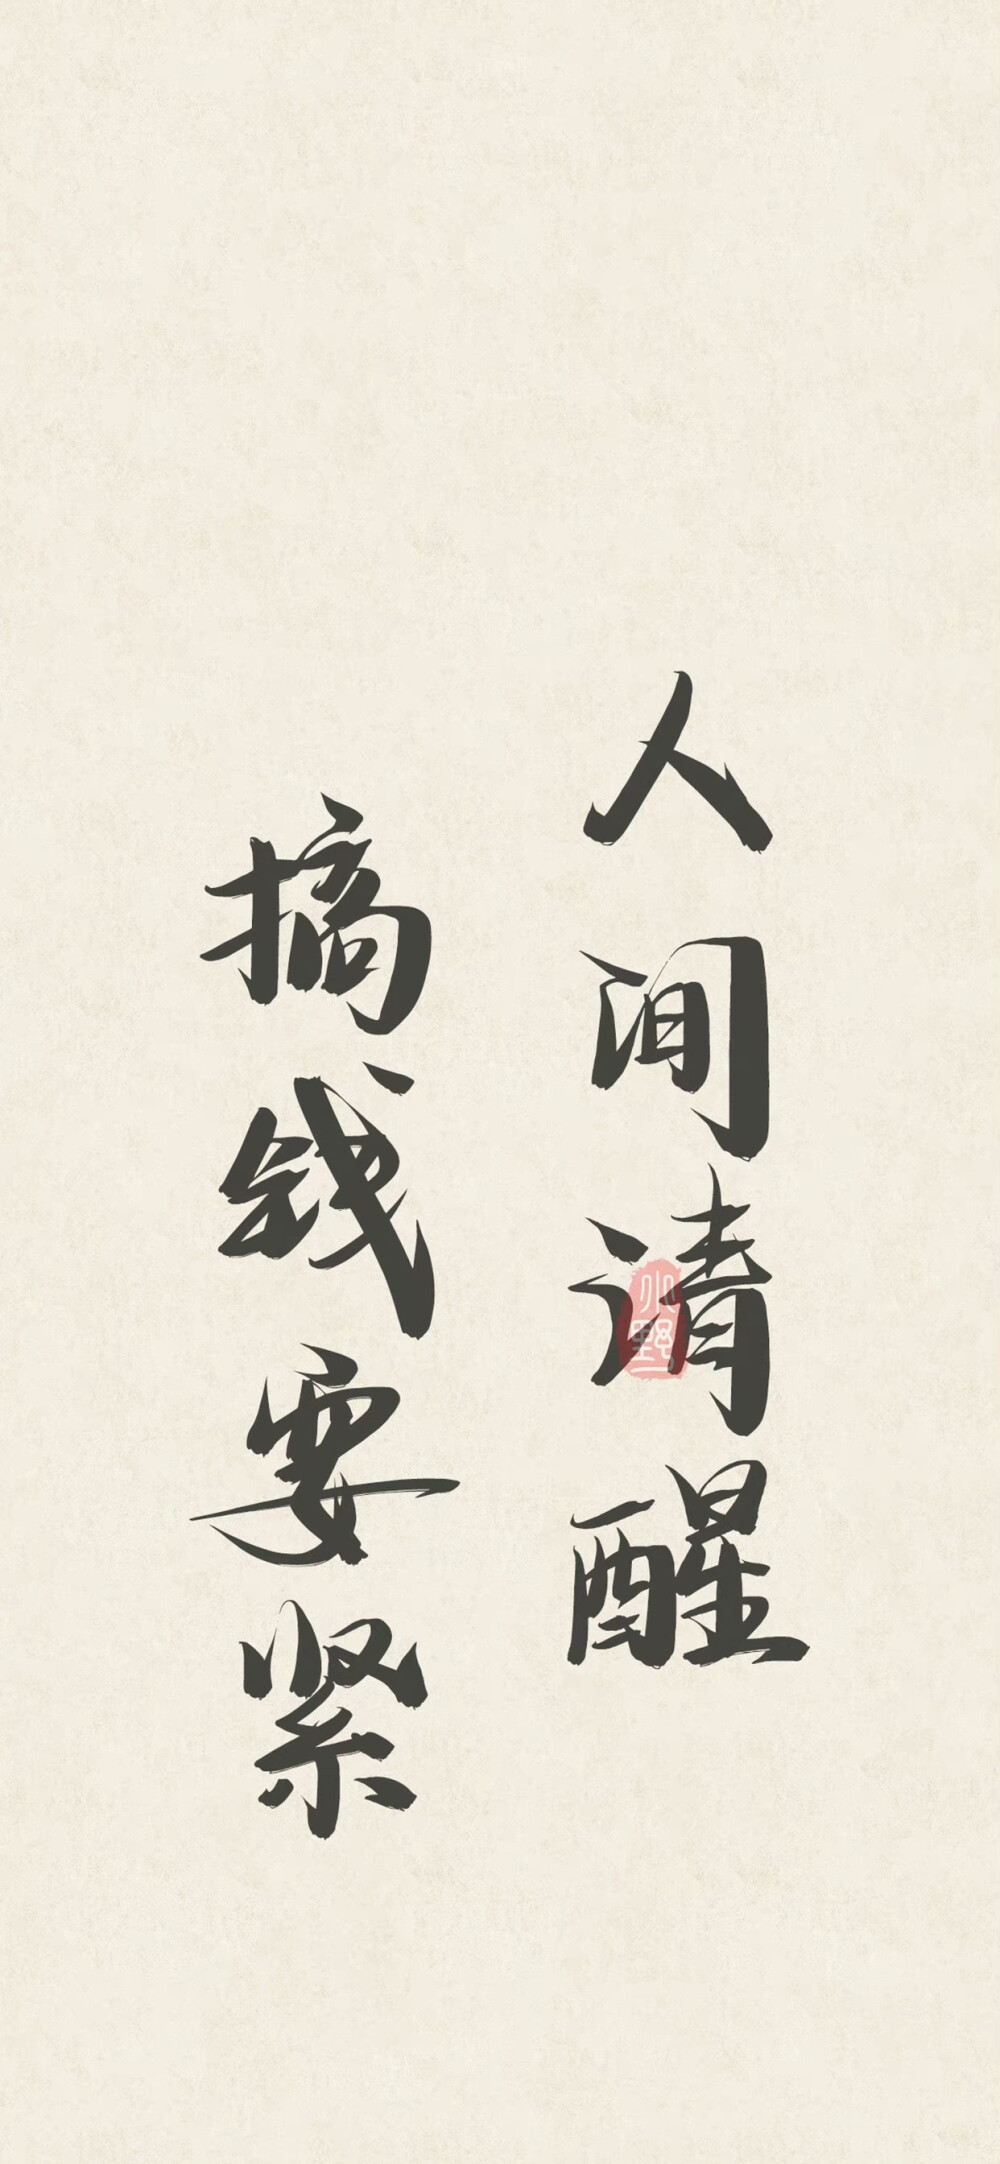 人间清醒
搞钱要紧
小野